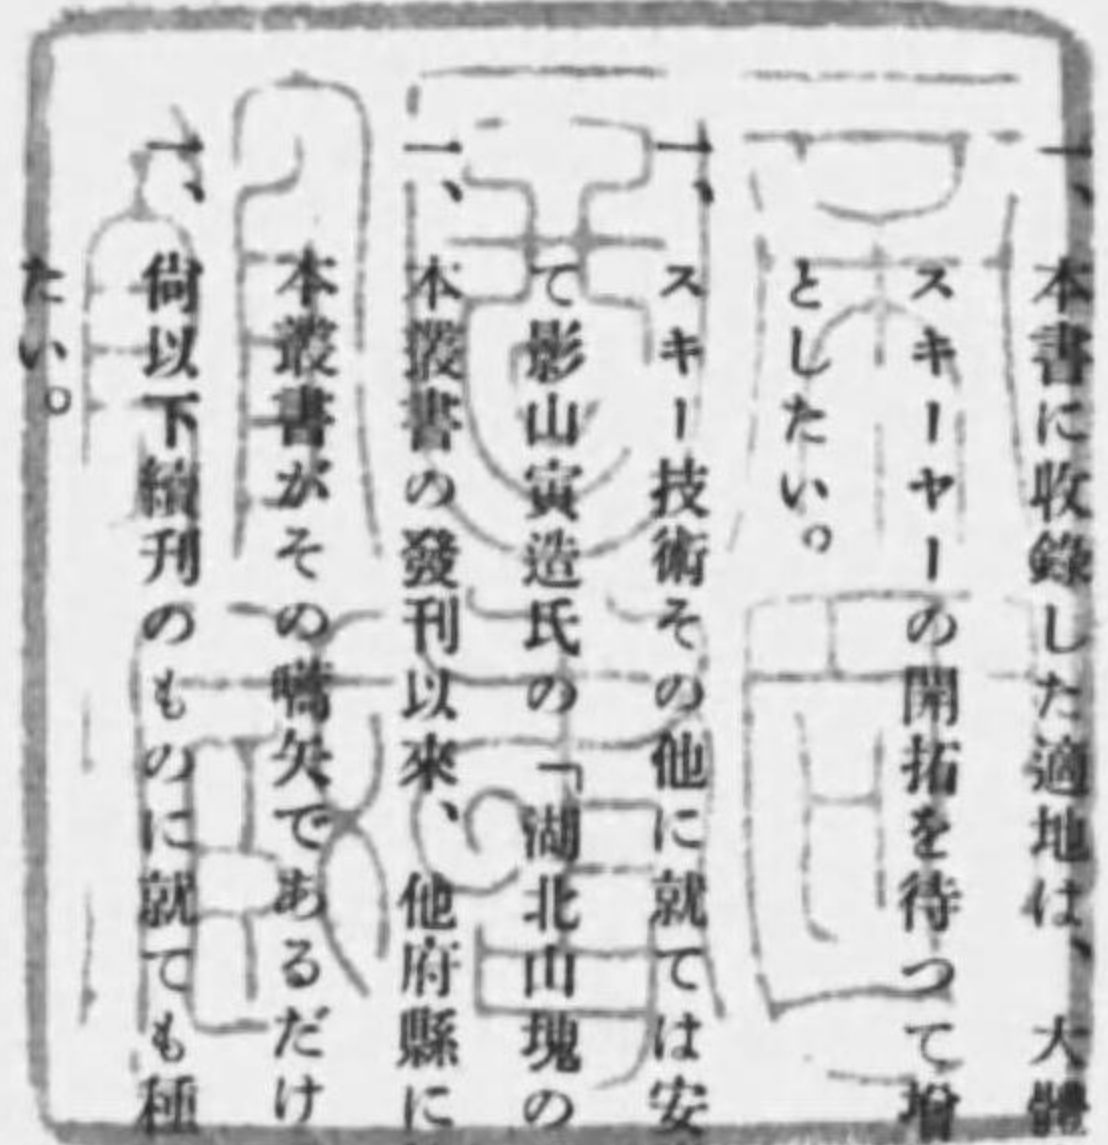 一、本書に收錄した適地は、大體
スキーヤーの開拓を待つて增
としたい。
一、スキー技術その他に就ては安
て影山寅造氏の「湖北山塊の
一、本叢書の發刊以來、他府縣に
本叢書がその嚆矢であるだけ
一、尙以下續刊のものに就ても種
たい。